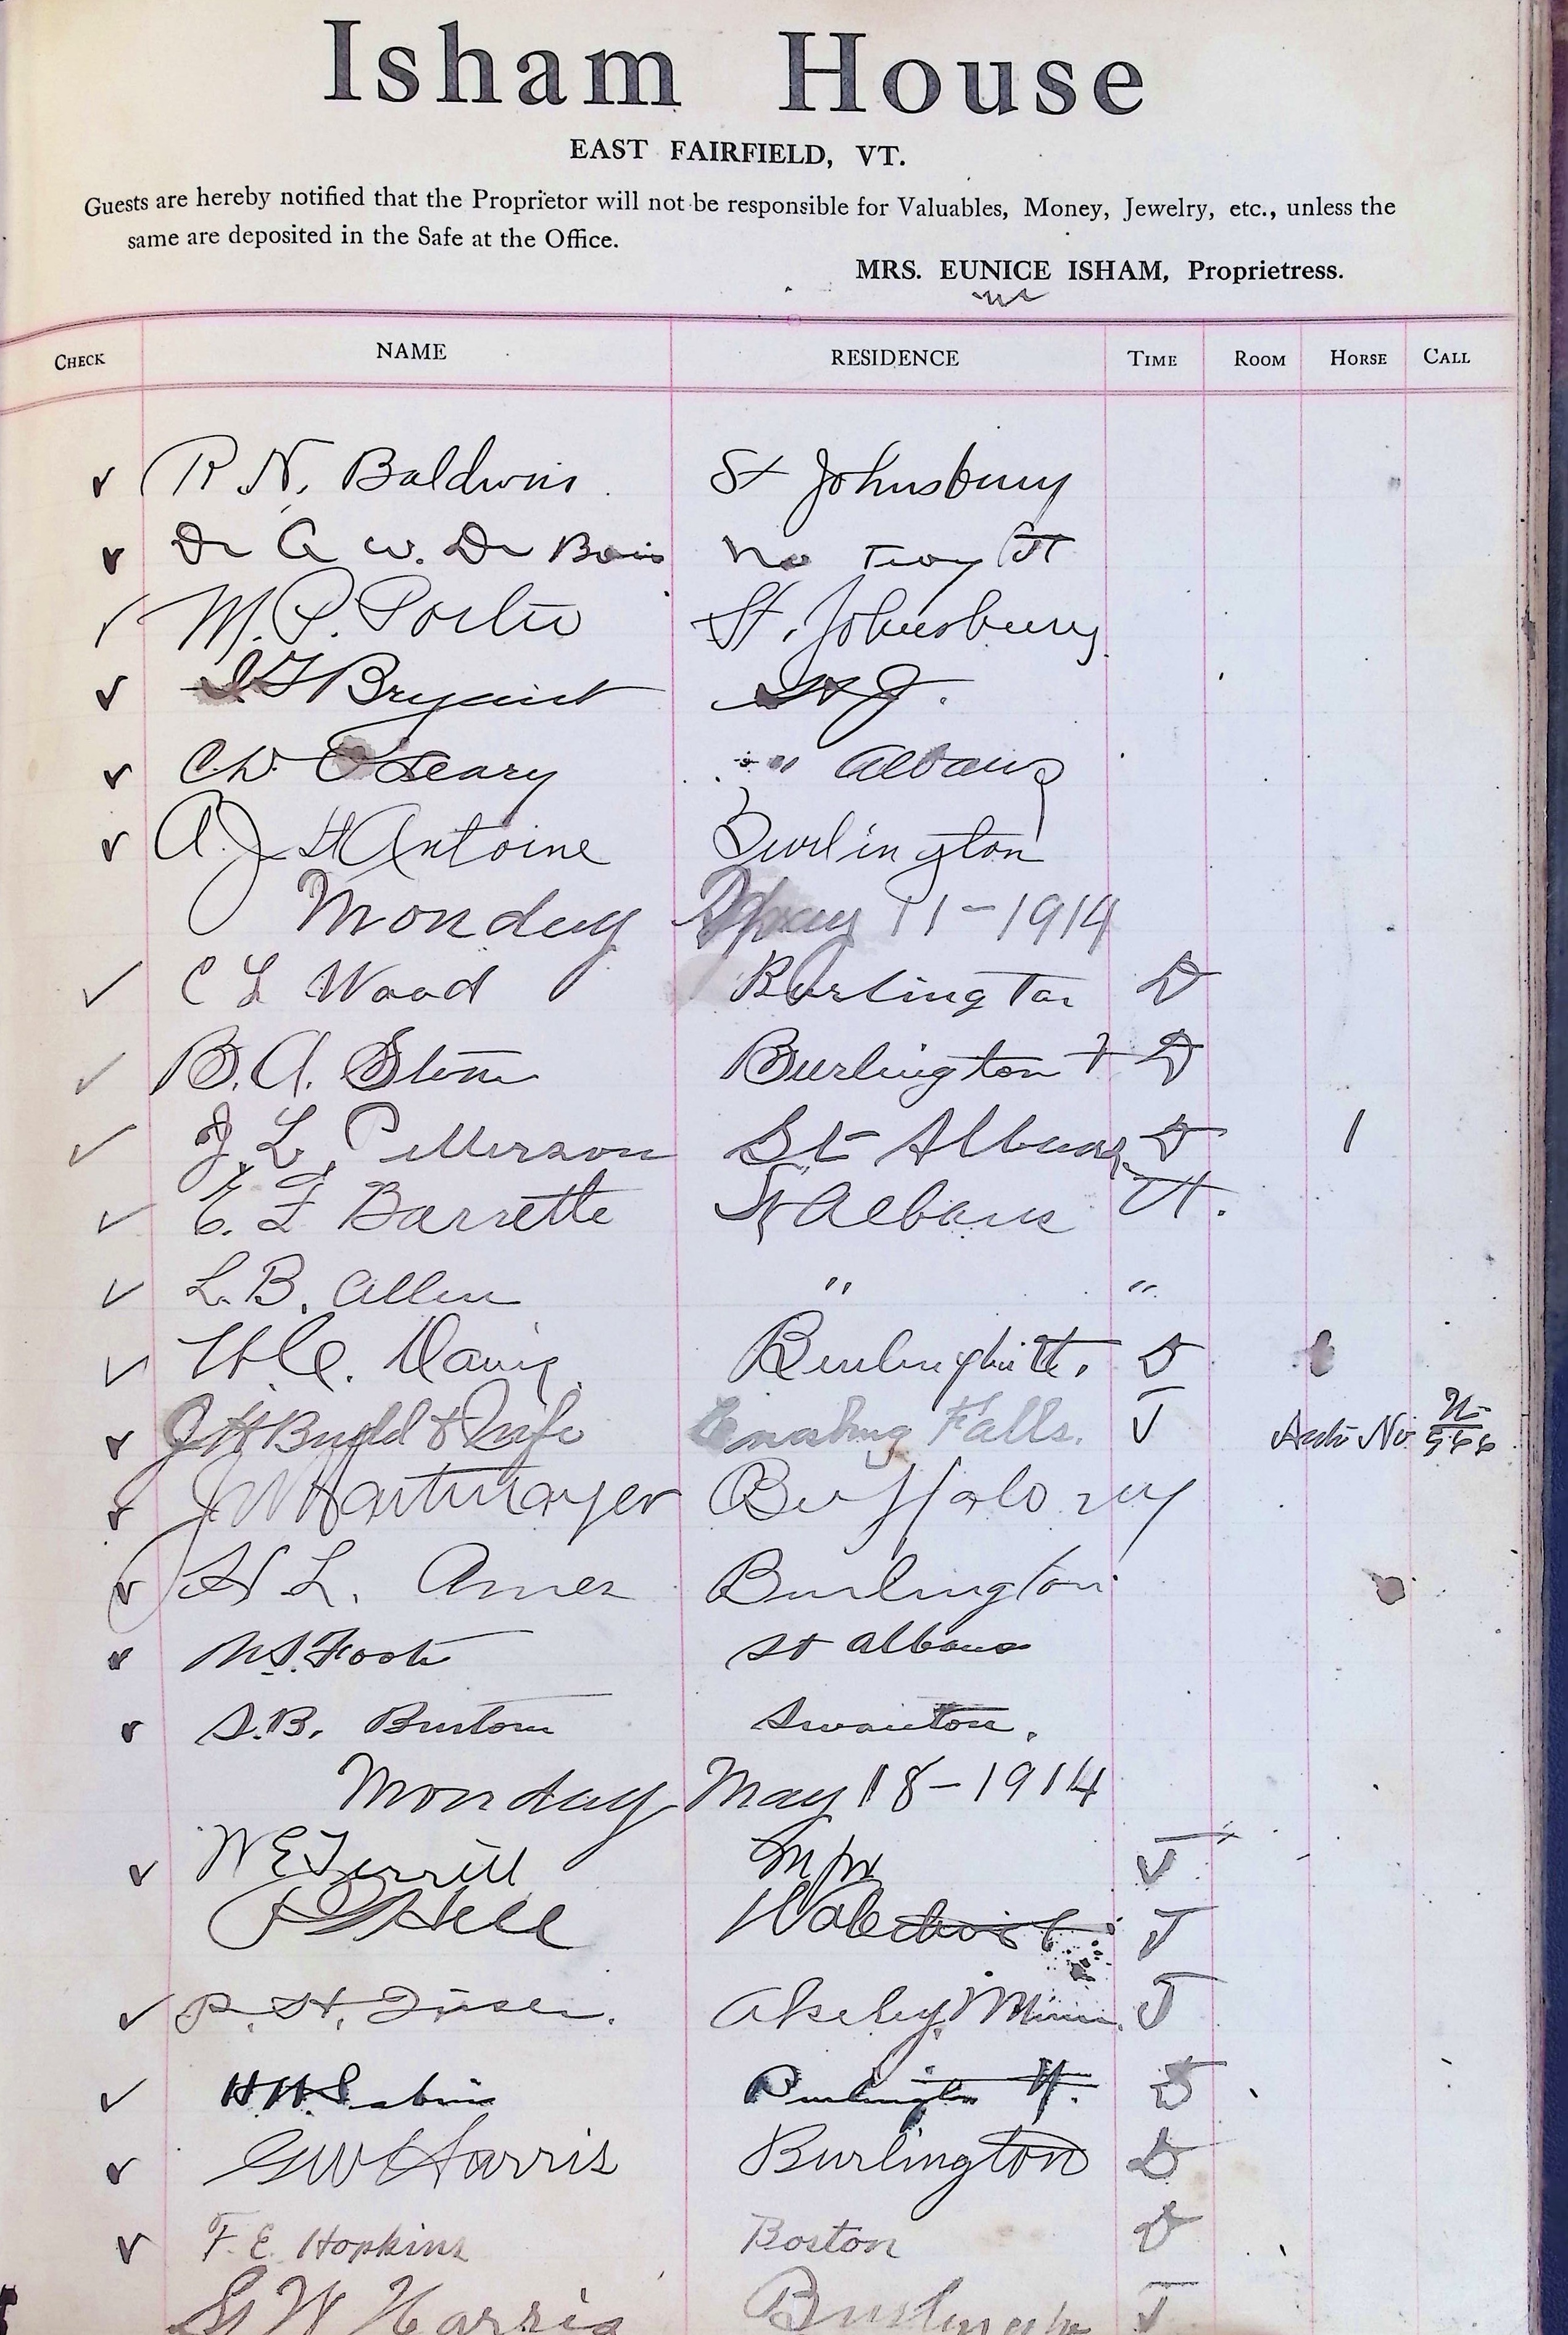 Isham House
EAST FAIRFIELD, VT.
Guests are hereby notified that the Proprietor will not be responsible for Valuables, Money, Jewelry, etc., unless the
same are deposited in the Safe at the Office.
MRS. EUNICE ISHAM, Proprietress.
CHECK NAME RESIDENCE TIME ROOM HORSE CALL
R N. Baldwin St Johnsbury
Dr A W. Du Bois No Troy Vt
M. P. Porter St. Johnsbury
Bryant St J.
C.W. O'Leary " " Albans
A. J. St Antoine Burlington
Monday May 11-1914
C L Wood Burlington D
B. A. Stone Burlington D
J. L. Patterson St Albans D 1
E. F. Barrette St Albans Vt.
L. B. Allen " "
H. C. Davis Burlington Vt. D
J H & Wife Enosburg Falls. T Auto No 566
J W Hartmayer Buffalo NY
H L. Ames Burlington
Foster St Albans
S. B. Burton Swanton.
Monday May 18-1914
W E Terrill Mpr T
Hill T
P. H. Akeley Minn. T
H. W. Sabin Burlington Vt. S
G W Harris Burlington D
F. E. Hopkins Boston D
G W Harris Burlington T